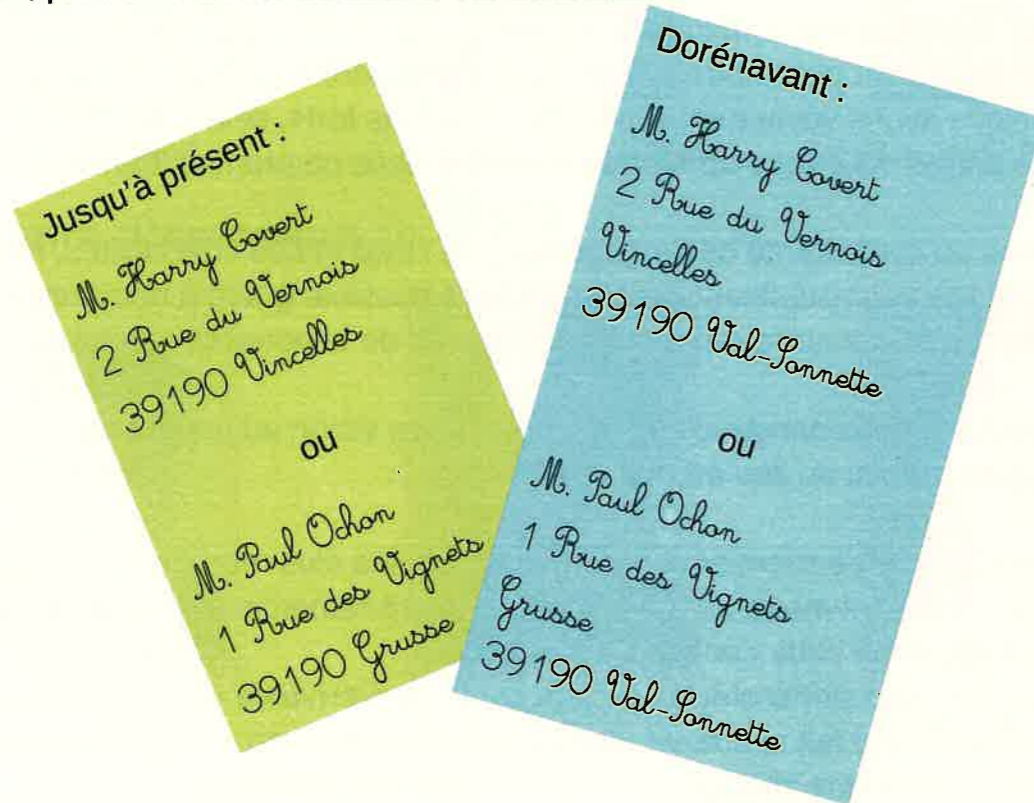 Jusqu'à présent :
M. Harry Covert
2 Rue du Vernois
39190 Vincelles
ou
M. Paul Ochon
1 Rue des Vignets
39190 Grusse
Dorénavant :
M. Harry Covert
2 Rue du Vernois
Vincelles
39190 Val-Sonnette
ou
M. Paul Ochon
1 Rue des Vignets
Grusse
39190 Val-Sonnette